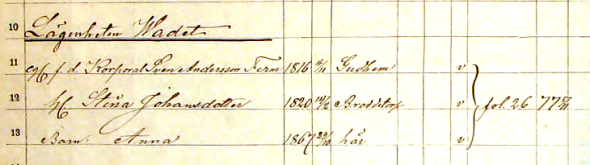 10 Lägenheten Wadet
11 f. d. Korporal Sven Andersson Fern 1816 Gudhem v
12 H Stina Johansdotter 1820 Broddetorp v fol. 26 77
13 Barn: Anna 1867 29/10 här v